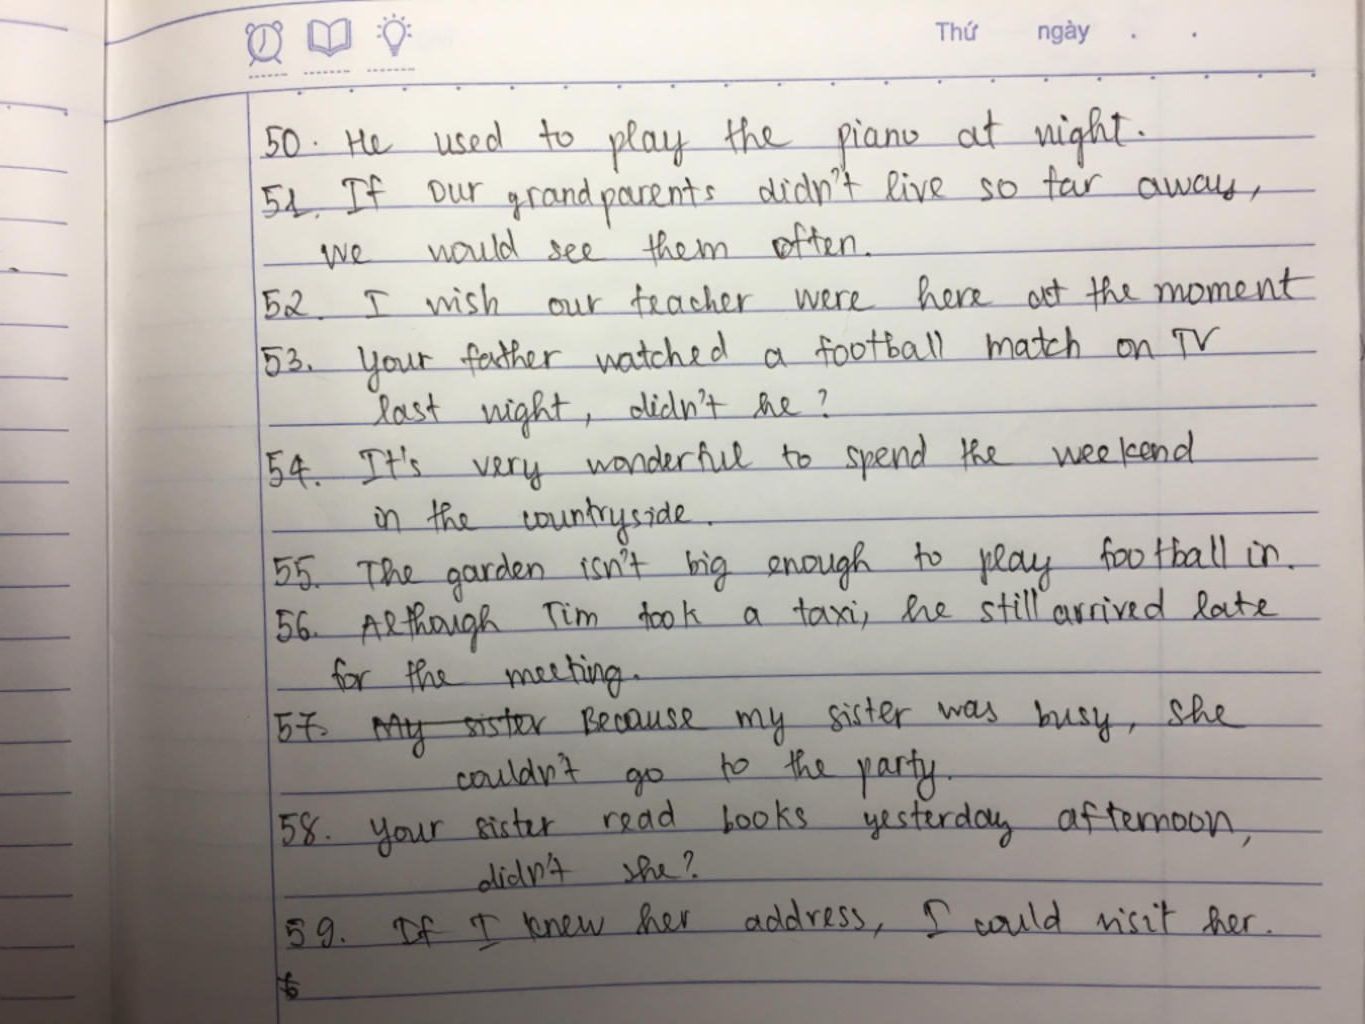 Thứ ngày . .
50. He used to play the piano at night.
51. If our grandparents didn't live so far away,
we would see them often.
52. I wish our teacher were here at the moment
53. Your father watched a football match on TV
last night, didn't he?
54. It's very wonderful to spend the weekend
in the countryside.
55. The garden isn't big enough to play football in.
56. Although Tim took a taxi, he still arrived late
for the meeting.
57. My sister Because my sister was busy, she
couldn't go to the party.
58. Your sister read books yesterday afternoon,
didn't she?
59. If I knew her address, I could visit her.